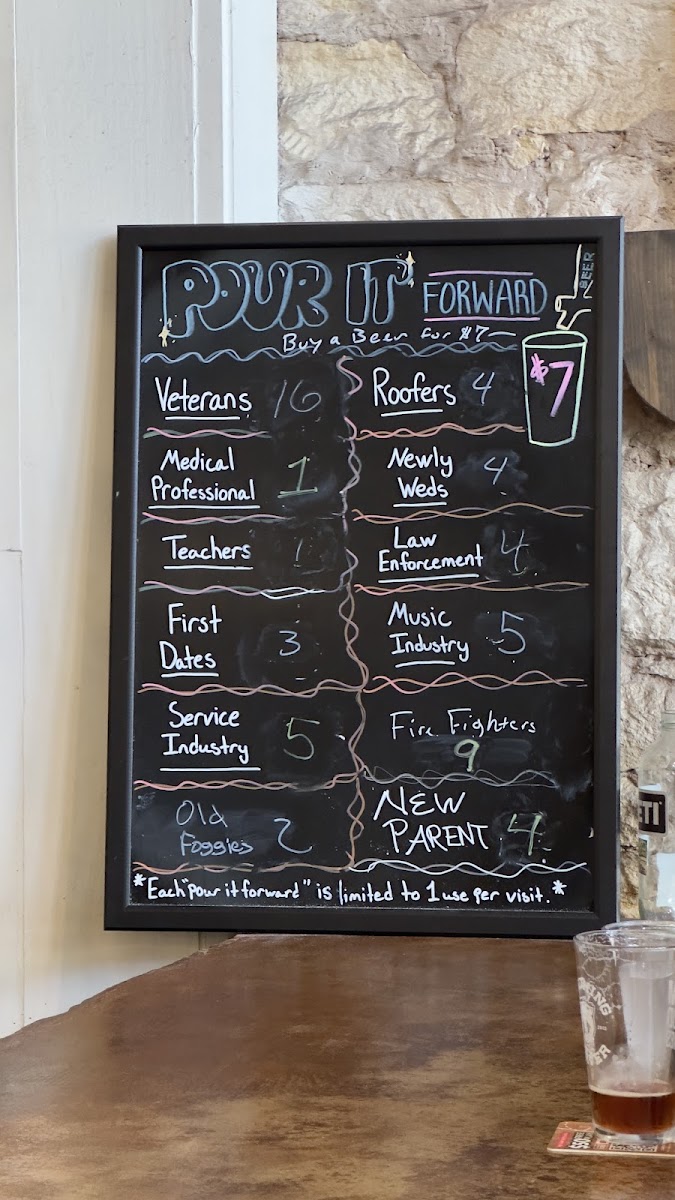 POUR IT FORWARD
BEER
Buy a Beer for $7
$7
Veterans 16
Roofers 4
Medical
Professional 1
Newly
Weds 4
Teachers 1
Law
Enforcement 4
First
Dates 3
Music
Industry 5
Service
Industry 5
Fire Fighters
9
Old
Foggies 2
NEW
PARENT 4
*Each "pour it forward" is limited to 1 use per visit.*
ETI